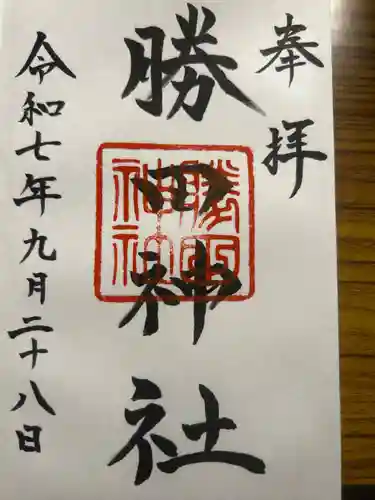 奉拝
勝田神社
勝田神社
令和七年九月二十八日